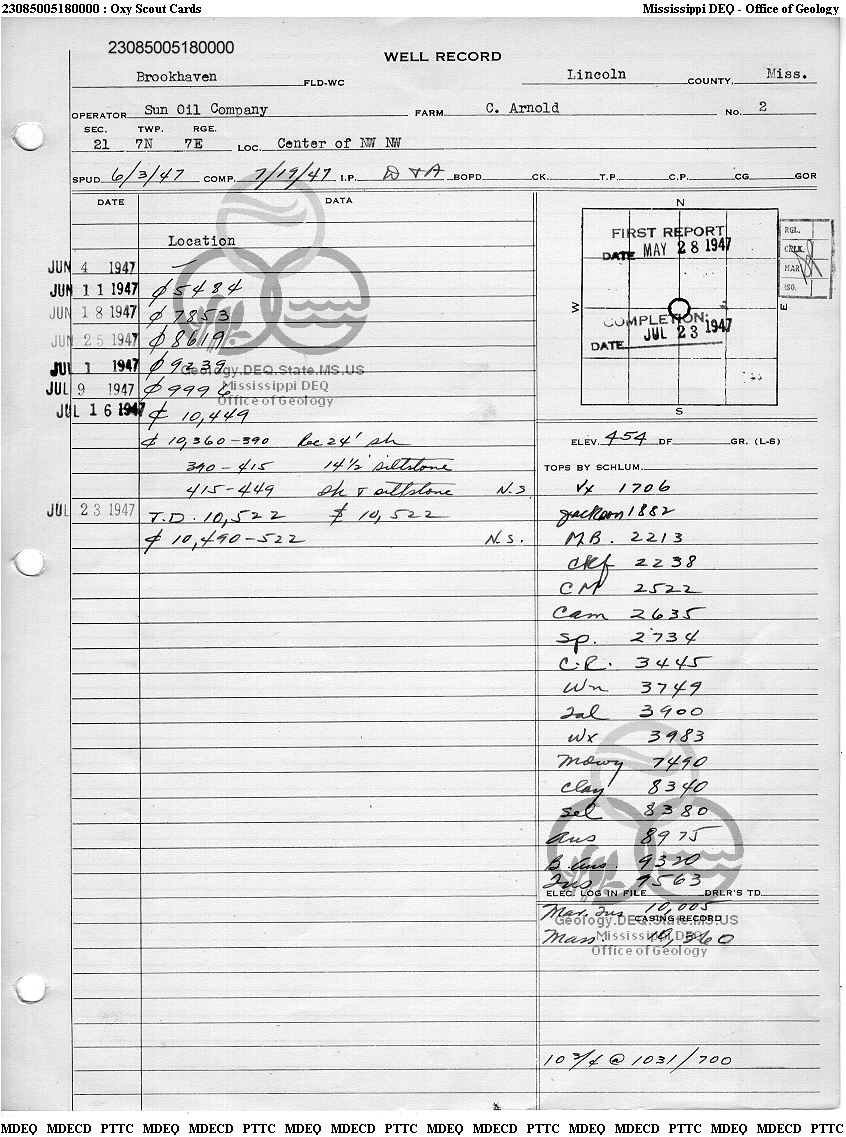 23085005180000 : Oxy Scout Cards Mississippi DEQ - Office of Geology
23085005180000
WELL RECORD
Brookhaven FLD-WC Lincoln COUNTY, Miss.
OPERATOR Sun Oil Company FARM C. Arnold No. 2
SEC. TWP. RGE.
21 7N 7E LOC. Center of NW NW
SPUD 6/3/47 COMP. 7/19/47 I.P. D & A BOPD CK. T.P. C.P. CG GOR
DATE DATA
Location
JUN 4 1947
JUN 11 1947 ₵ 5484
JUN 18 1947 ₵ 7853
JUN 25 1947 ₵ 8619
JUL 1 1947 ₵ 9239
JUL 9 1947 ₵ 9996
JUL 16 1947 ₵ 10,449
₵ 10,360-390 Rec 24' sh
390-415 14½' siltstone
415-449 sh & siltstone N.S
JUL 23 1947 T.D. 10,522 10,522
₵ 10,490-522 N.S.
Geology.DEQ.State.MS.US
Mississippi DEQ
Office of Geology
N
FIRST REPORT
DATE MAY 28 1947
W E
COMPLETION:
JUL 23 1947
DATE
S
RGL.
CHK.
MAR
ISO.
ELEV. 454 DF GR. (L-S)
TOPS BY SCHLUM.
Vx 1706
Jackson 1882
M.B. 2213
Ckf 2238
CM 2522
Cam 2635
Sp. 2734
C.R. 3445
Wn 3749
Sal 3900
Wx 3983
Mowy 7490
Clay 8340
Sel 8380
Aus 8975
B. Aus. 9320
Tus 9563
ELEC. LOG IN FILE DRLR'S TD
Mar. Tus 10,005
CASING RECORD
Mass. 10,360
Geology.DEQ.State.MS.US
Mississippi DEQ
Office of Geology
10 3/4 @ 1031/700
MDEQ MDECD PTTC MDEQ MDECD PTTC MDEQ MDECD PTTC MDEQ MDECD PTTC MDEQ MDECD PTTC MDEQ MDECD PTTC